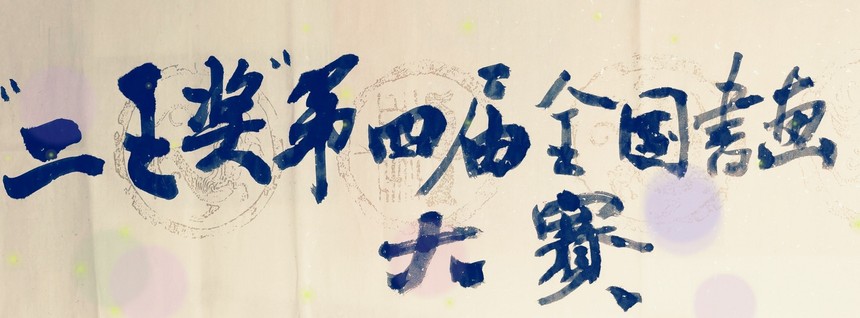 “二王奖”第四届全国書画
大赛